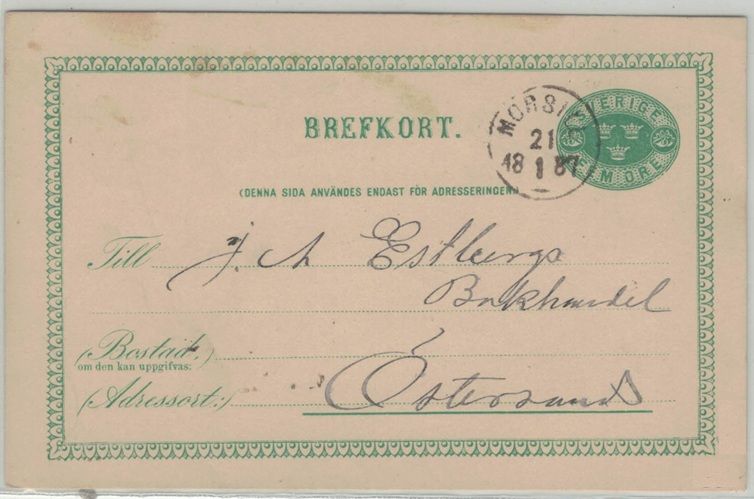 BREFKORT.
SVERIGE
FEM ÖRE
MORSI
21
18 1 87
(DENNA SIDA ANVÄNDES ENDAST FÖR ADRESSERINGEN)
Till J. A Estbergs
Bokhandel
(Bostad:)
om den kan uppgifvas:
(Adressort:) Östersund